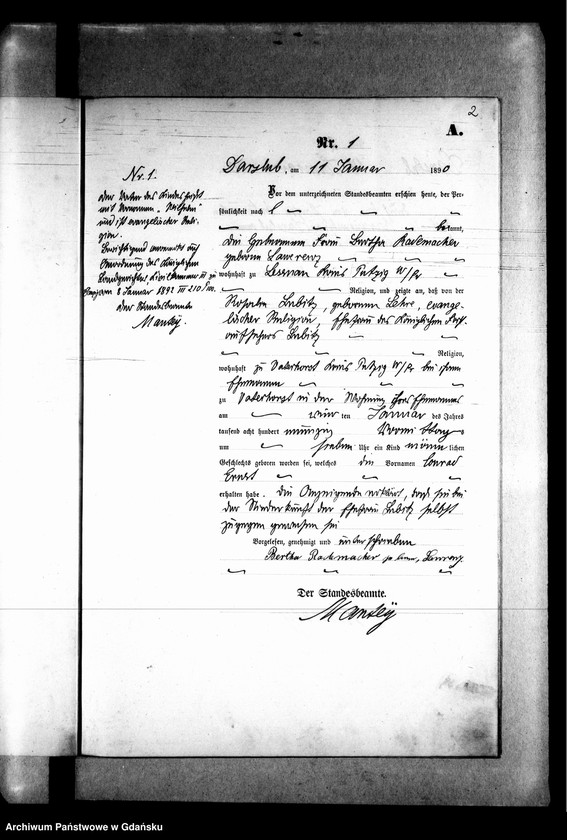 2
A.
Nr. 1
Darslub, am 11 Januar 1890
Vor dem unterzeichneten Standesbeamten erschien heute, der Per-
sönlichkeit nach
kannt,
die Hebamme Frau Bertha Rademacher
geborene Lawrenz
wohnhaft zu Lesnau Kreis Putzig W/Pr
Religion, und zeigte an, daß von der
Rosalie Lubitz, geborenen Lehre, evange-
lischer Religion, Ehefrau des Königlichen Forst-
aufsehers Lubitz
Religion,
wohnhaft zu Kreis Putzig W/Pr bei ihrem
Ehemanne
zu in der Wohnung ihres Ehemannes
am ten Januar des Jahres
tausend acht hundert neunzig Vormittags
um sieben Uhr ein Kind männlichen
Geschlechts geboren worden sei, welches die Vornamen Conrad
Ernst
erhalten habe. Die Anzeigende erklärt, daß sie bei
der Niederkunft der Ehefrau Lubitz selbst
zugegen gewesen sei
Vorgelesen, genehmigt und unterschrieben
Bertha Rademacher geborene, Lawrenz
Der Standesbeamte.
Manley
Nr. 1.
Der Vater des Kindes heißt
mit Vornamen
und ist evangelischer Reli-
gion.
Berichtigend vermerkt auf
Anordnung des Königlichen
Landgerichts, Civilkammer III zu
8 Januar 1891 III
Der Standesbeamte
Manley.
Archiwum Państwowe w Gdańsku